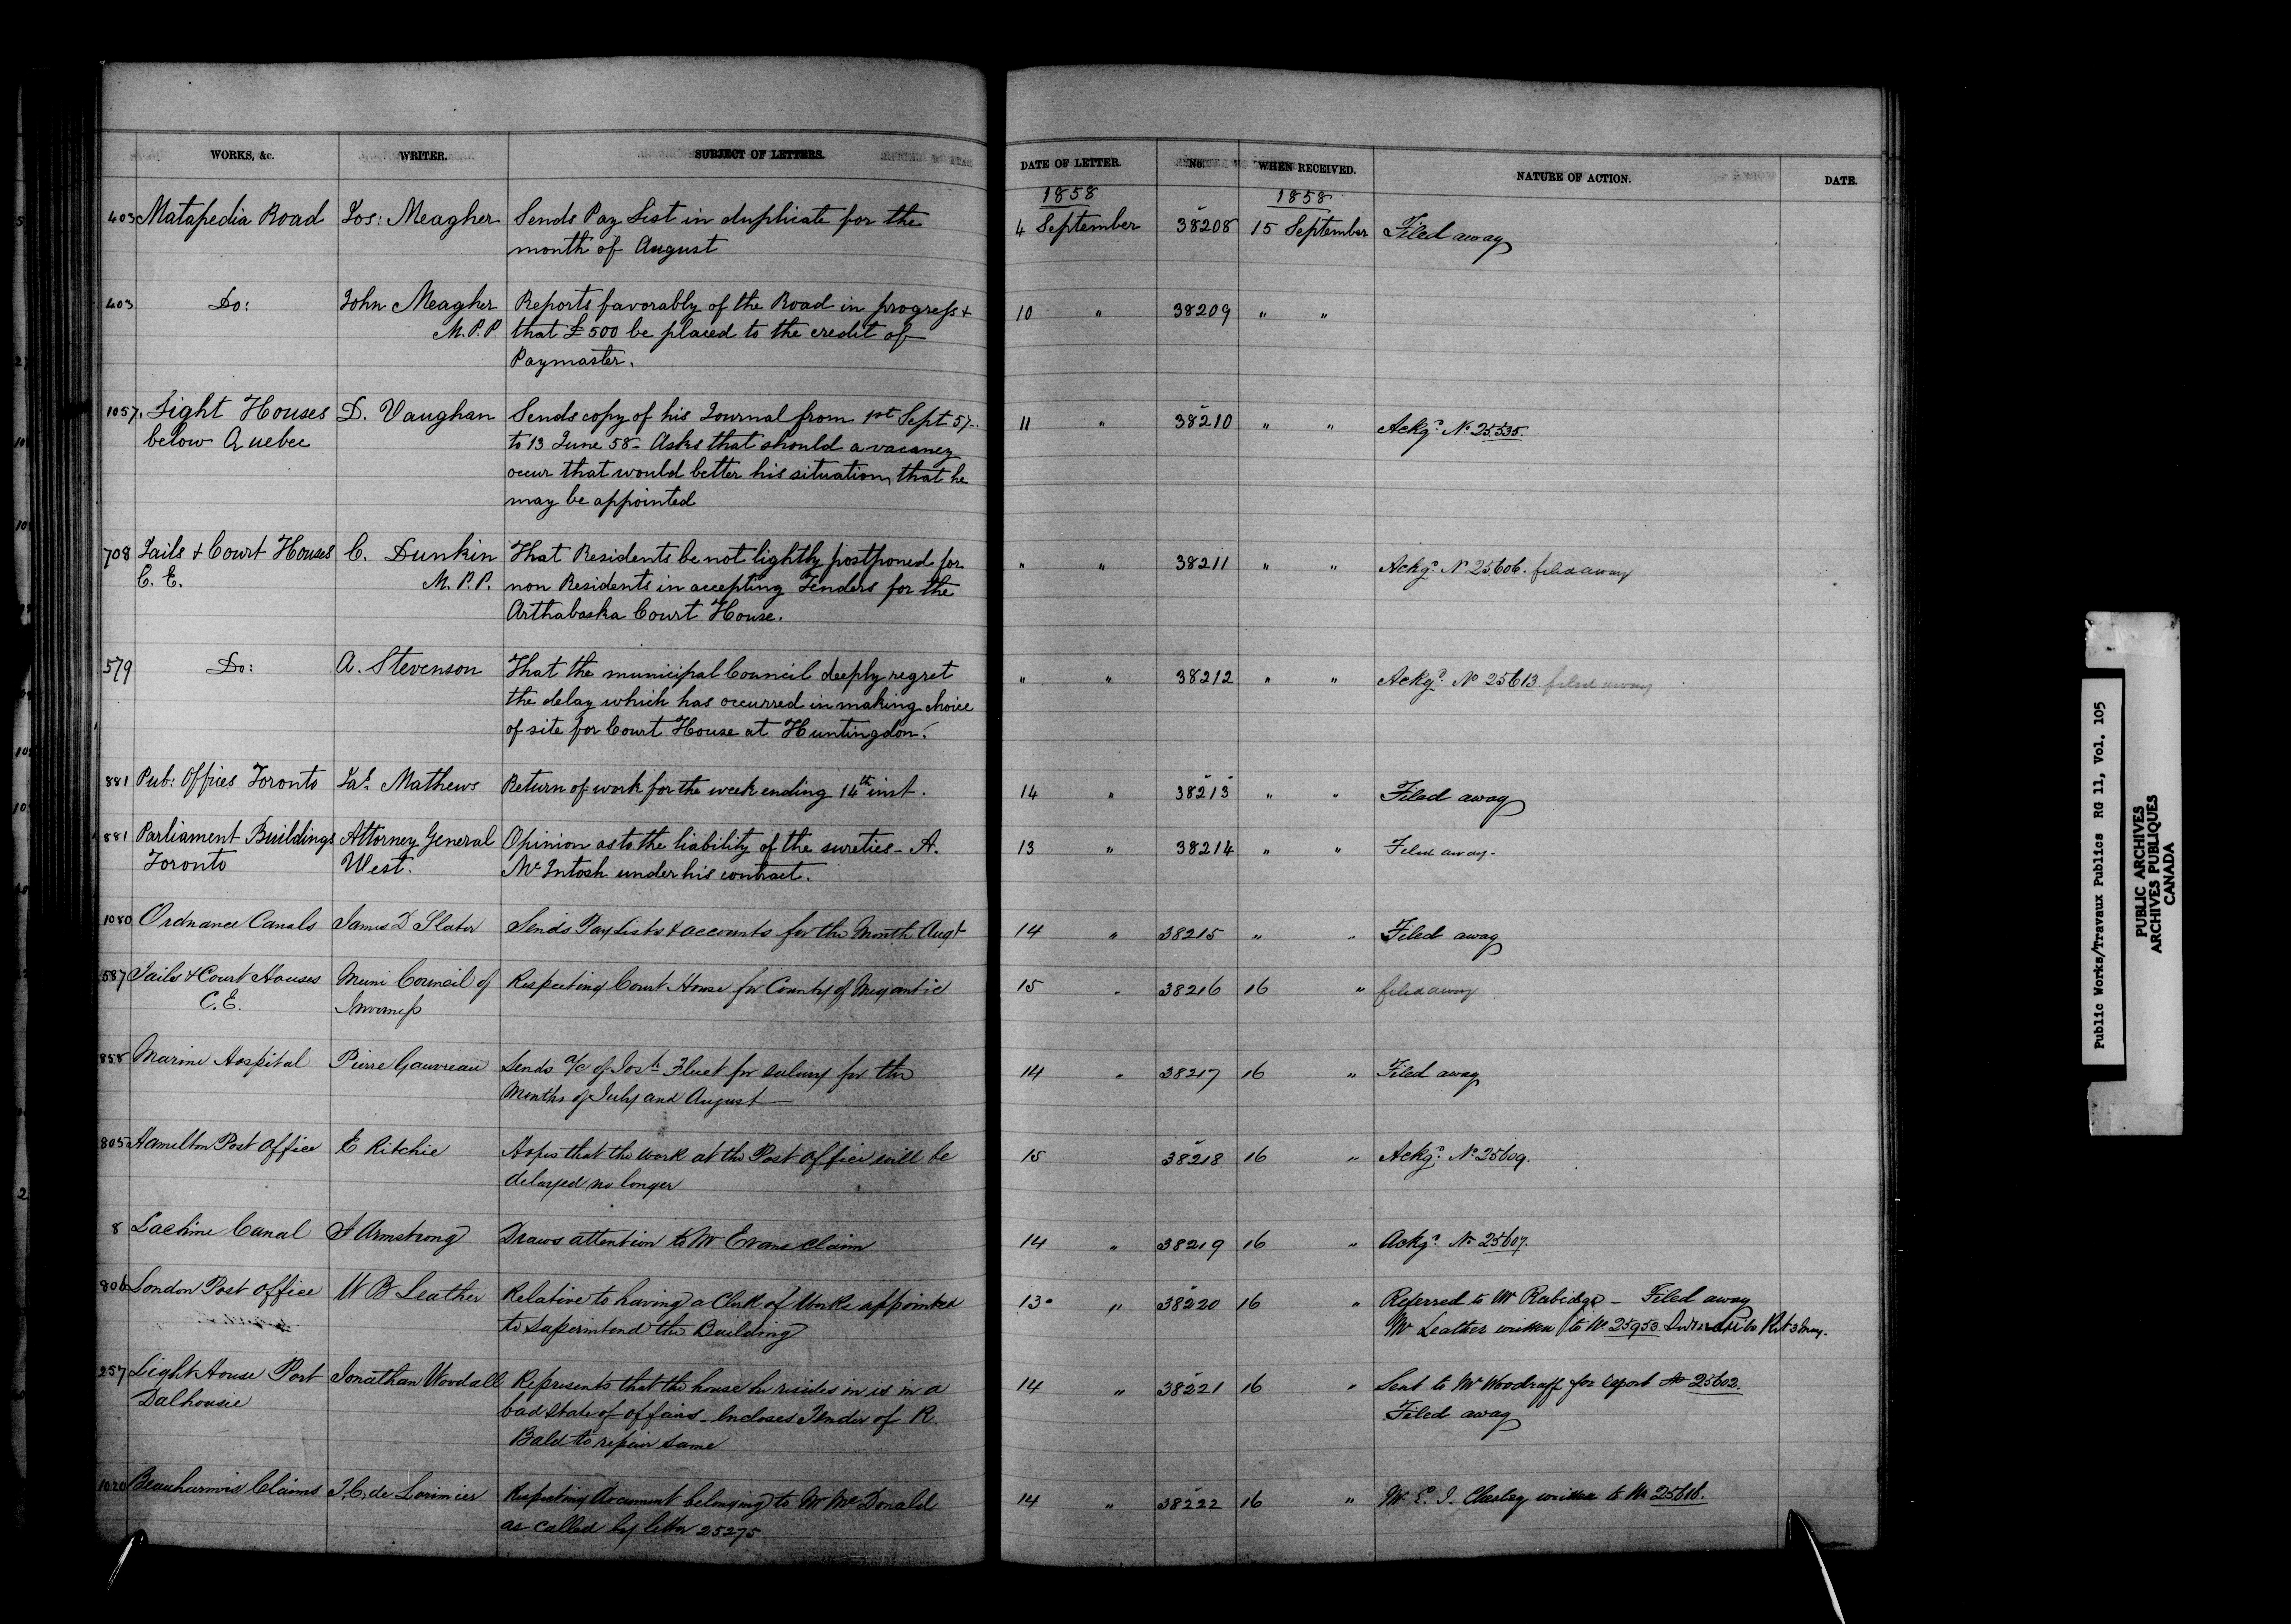 WORKS, &c. WRITER. SUBJECT OF LETTERS. DATE OF LETTER. No. WHEN RECEIVED. NATURE OF ACTION. DATE.
1858 1858
403 Matapedia Road Jos: Meagher Sends Pay List in duplicate for the 4 September 38208 15 September Filed away
month of August
403 Do: John Meagher Reports favorably of the Road in progress + 10 " 38209 " "
M.P.P. that £500 be placed to the credit of
Paymaster.
1057. Light Houses D. Vaughan Sends copy of his Journal from 1st Sept 57 11 " 38210 " " Ackgd No 25535.
below Quebec to 13 June 58 - Asks that should a vacancy
occur that would better his situation, that he
may be appointed
708 Jails + Court Houses C. Dunkin That Residents be not lightly postponed for " " 38211 " " Ackgd No 25606. filed away
C. E. M.P.P. non Residents in accepting Tenders for the
Arthabaska Court House.
579 Do: A. Stevenson That the municipal Council deeply regret " " 38212 " " Ackgd No 25613 filed away
the delay which has occurred in making choice
of site for Court House at Huntingdon.
881 Pub: Offices Toronto Jas Mathews Return of work for the week ending 14th inst. 14 " 38213 " " Filed away
881 Parliament Buildings Attorney General Opinion as to the liability of the sureties - A. 13 " 38214 " " Filed away.
Toronto West. McIntosh under his contract.
1080 Ordnance Canals James D Slater Sends Pay Lists & accounts for the Month Augt 14 " 38215 " " Filed away
587 Jails & Court Houses Muni Council of Respecting Court House for County of Megantic 15 " 38216 16 " filed away
C.E. Inverness
858 Marine Hospital Pierre Gauvreau Sends a/c of Josh Fluet for salary for the 14 " 38217 16 " Filed away
Months of July and August
805 Hamilton Post Office E Ritchie Hopes that the work at the Post Office will be 15 38218 16 " Ackgd No 25609.
delayed no longer
8 Lachine Canal J Armstrong Draws attention to Mr Evans claim 14 " 38219 16 " Ackgd No 25607.
806 London Post Office W B Leather Relative to having a Clerk of Works appointed 13 " 38220 16 " Referred to Mr Rubidge - Filed away
to superintend the Building Mr Leather written to No 25950
257 Light House Port Jonathan Woodall Represents that the house he resides in is in a 14 " 38221 16 " Sent to Mr Woodruff for report No 25602.
Dalhousie bad state of affairs - Incloses Tender of R. Filed away
Bald to repair same
1020 Beauharnois Claims T.C. de Lorimier Respecting document belonging to Mr McDonald 14 " 38222 16 " Mr E. J. Chesley written to No 25618.
as called by letter 25275
Public Works/Travaux Publics RG 11, Vol. 105
PUBLIC ARCHIVES
ARCHIVES PUBLIQUES
CANADA